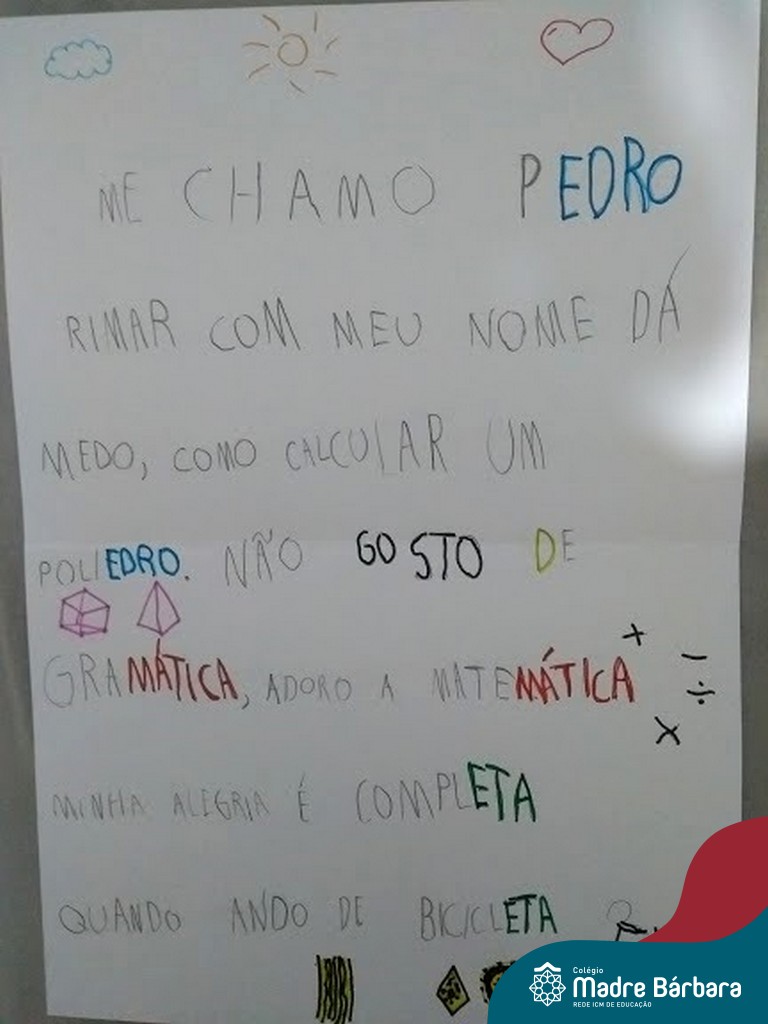 ME CHAMO PEDRO
RIMAR COM MEU NOME DÁ
MEDO, COMO CALCULAR UM
POLIEDRO. NÃO GOSTO DE
GRAMÁTICA, ADORO A MATEMÁTICA
+
-
÷
x
MINHA ALEGRIA É COMPLETA
QUANDO ANDO DE BICICLETA
Colégio
Madre Bárbara
REDE ICM DE EDUCAÇÃO